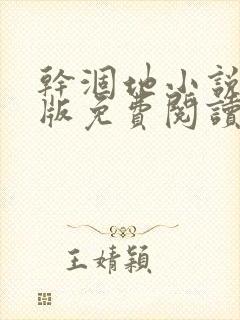 幹涸地小說
版免費閱讀
王婧穎